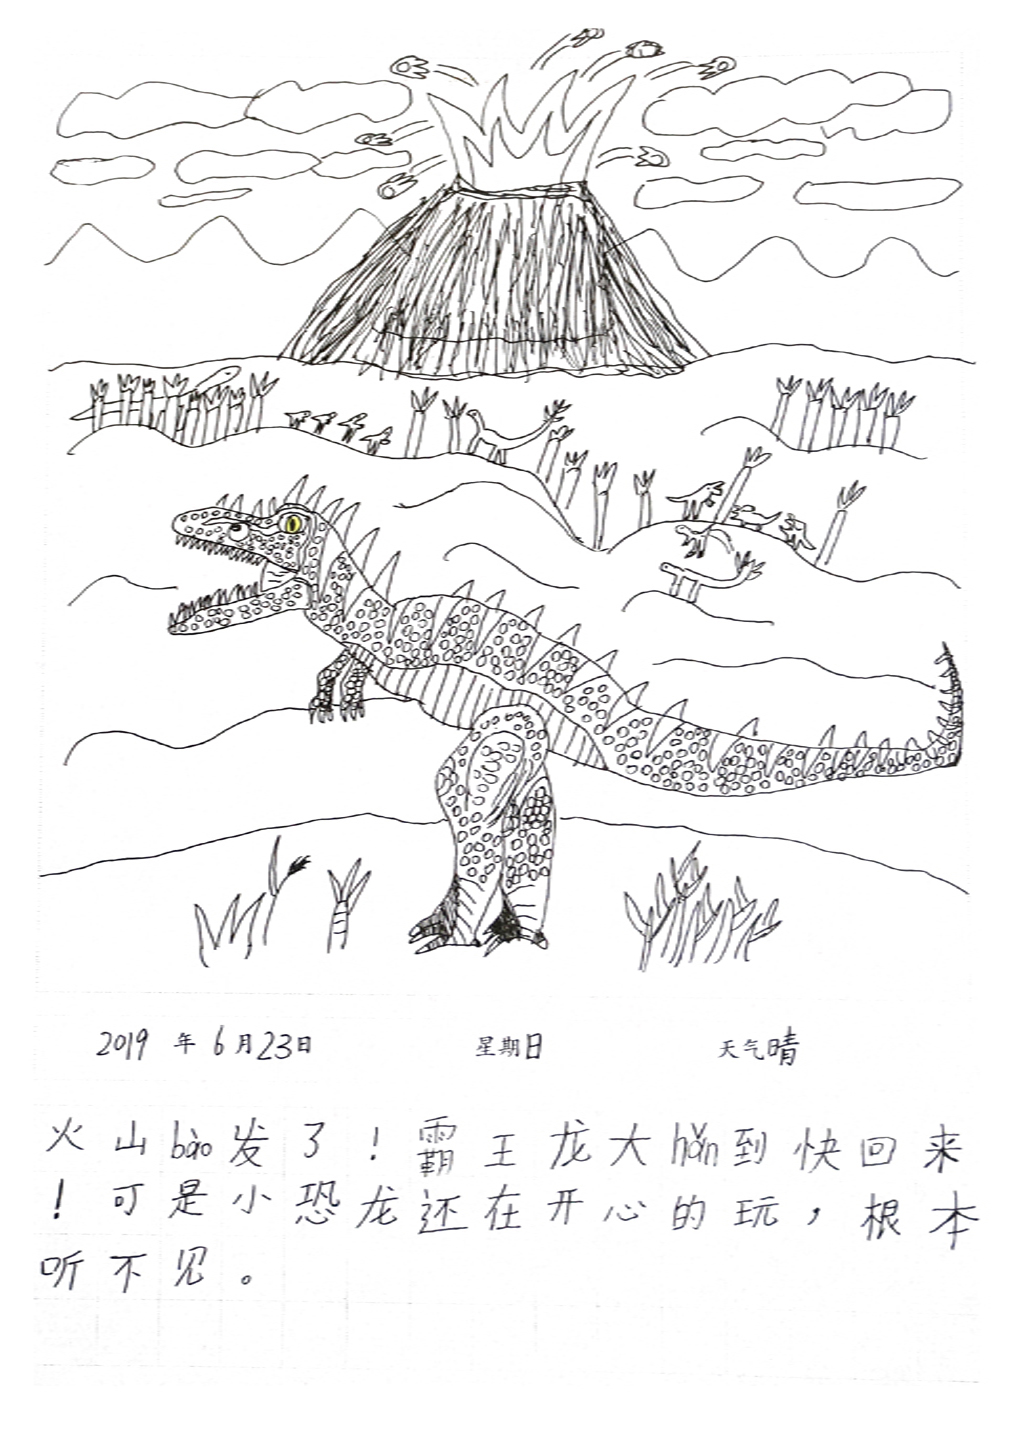 2019 年 6月23日 星期日 天气晴
火山bào发了！霸王龙大hǎn到快回来
！可是小恐龙还在开心的玩，根本
听不见。